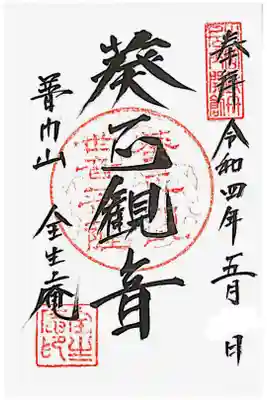 奉拝
令和四年五月 日
葵正観音
普門山
全生庵